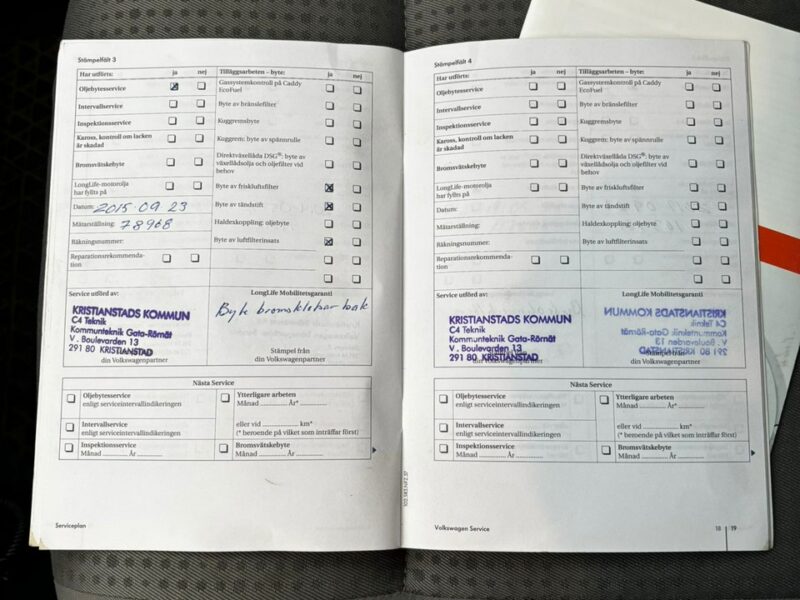 Stämpelfält 3
Har utförts: ja nej
Oljebytesservice
Intervallservice
Inspektionsservice
Kaross, kontroll om lacken
är skadad
Bromsvätskebyte
LongLife-motorolja
har fyllts på
Datum: 2015.09.23
Mätarställning: 78968
Räkningsnummer:
Reparationsrekommenda-
tion
Tilläggsarbeten – byte: ja nej
Gassystemkontroll på Caddy
EcoFuel
Byte av bränslefilter
Kuggremsbyte
Kuggrem: byte av spännrulle
Direktväxellåda DSG®: byte av
växellådsolja och oljefilter vid
behov
Byte av friskluftsfilter
Byte av tändstift
Haldexkoppling: oljebyte
Byte av luftfilterinsats
Service utförd av:
KRISTIANSTADS KOMMUN
C4 Teknik
Kommunteknik Gata-Rörnät
V. Boulevarden 13
291 80 KRISTIANSTAD
din Volkswagenpartner
LongLife Mobilitetsgaranti
Byte bromsklotsar bak
Stämpel från
din Volkswagenpartner
Nästa Service
Oljebytesservice
enligt serviceintervallindikeringen
Intervallservice
enligt serviceintervallindikeringen
Inspektionsservice
Månad ........... År ...........
Ytterligare arbeten
Månad ........... År* ...........
eller vid ........... km*
(* beroende på vilket som inträffar först)
Bromsvätskebyte
Månad ........... År ...........
Serviceplan
Stämpelfält 4
Har utförts: ja nej
Oljebytesservice
Intervallservice
Inspektionsservice
Kaross, kontroll om lacken
är skadad
Bromsvätskebyte
LongLife-motorolja
har fyllts på
Datum:
Mätarställning:
Räkningsnummer:
Reparationsrekommenda-
tion
Tilläggsarbeten – byte: ja nej
Gassystemkontroll på Caddy
EcoFuel
Byte av bränslefilter
Kuggremsbyte
Kuggrem: byte av spännrulle
Direktväxellåda DSG®: byte av
växellådsolja och oljefilter vid
behov
Byte av friskluftsfilter
Byte av tändstift
Haldexkoppling: oljebyte
Byte av luftfilterinsats
Service utförd av:
KRISTIANSTADS KOMMUN
C4 Teknik
Kommunteknik Gata-Rörnät
V. Boulevarden 13
291 80 KRISTIANSTAD
din Volkswagenpartner
LongLife Mobilitetsgaranti
KRISTIANSTADS KOMMUN
C4 Teknik
Kommunteknik Gata-Rörnät
V. Boulevarden 13
291 80 KRISTIANSTAD
din Volkswagenpartner
Nästa Service
Oljebytesservice
enligt serviceintervallindikeringen
Intervallservice
enligt serviceintervallindikeringen
Inspektionsservice
Månad ........... År ...........
Ytterligare arbeten
Månad ........... År* ...........
eller vid ........... km*
(* beroende på vilket som inträffar först)
Bromsvätskebyte
Månad ........... År ...........
Volkswagen Service
18 19